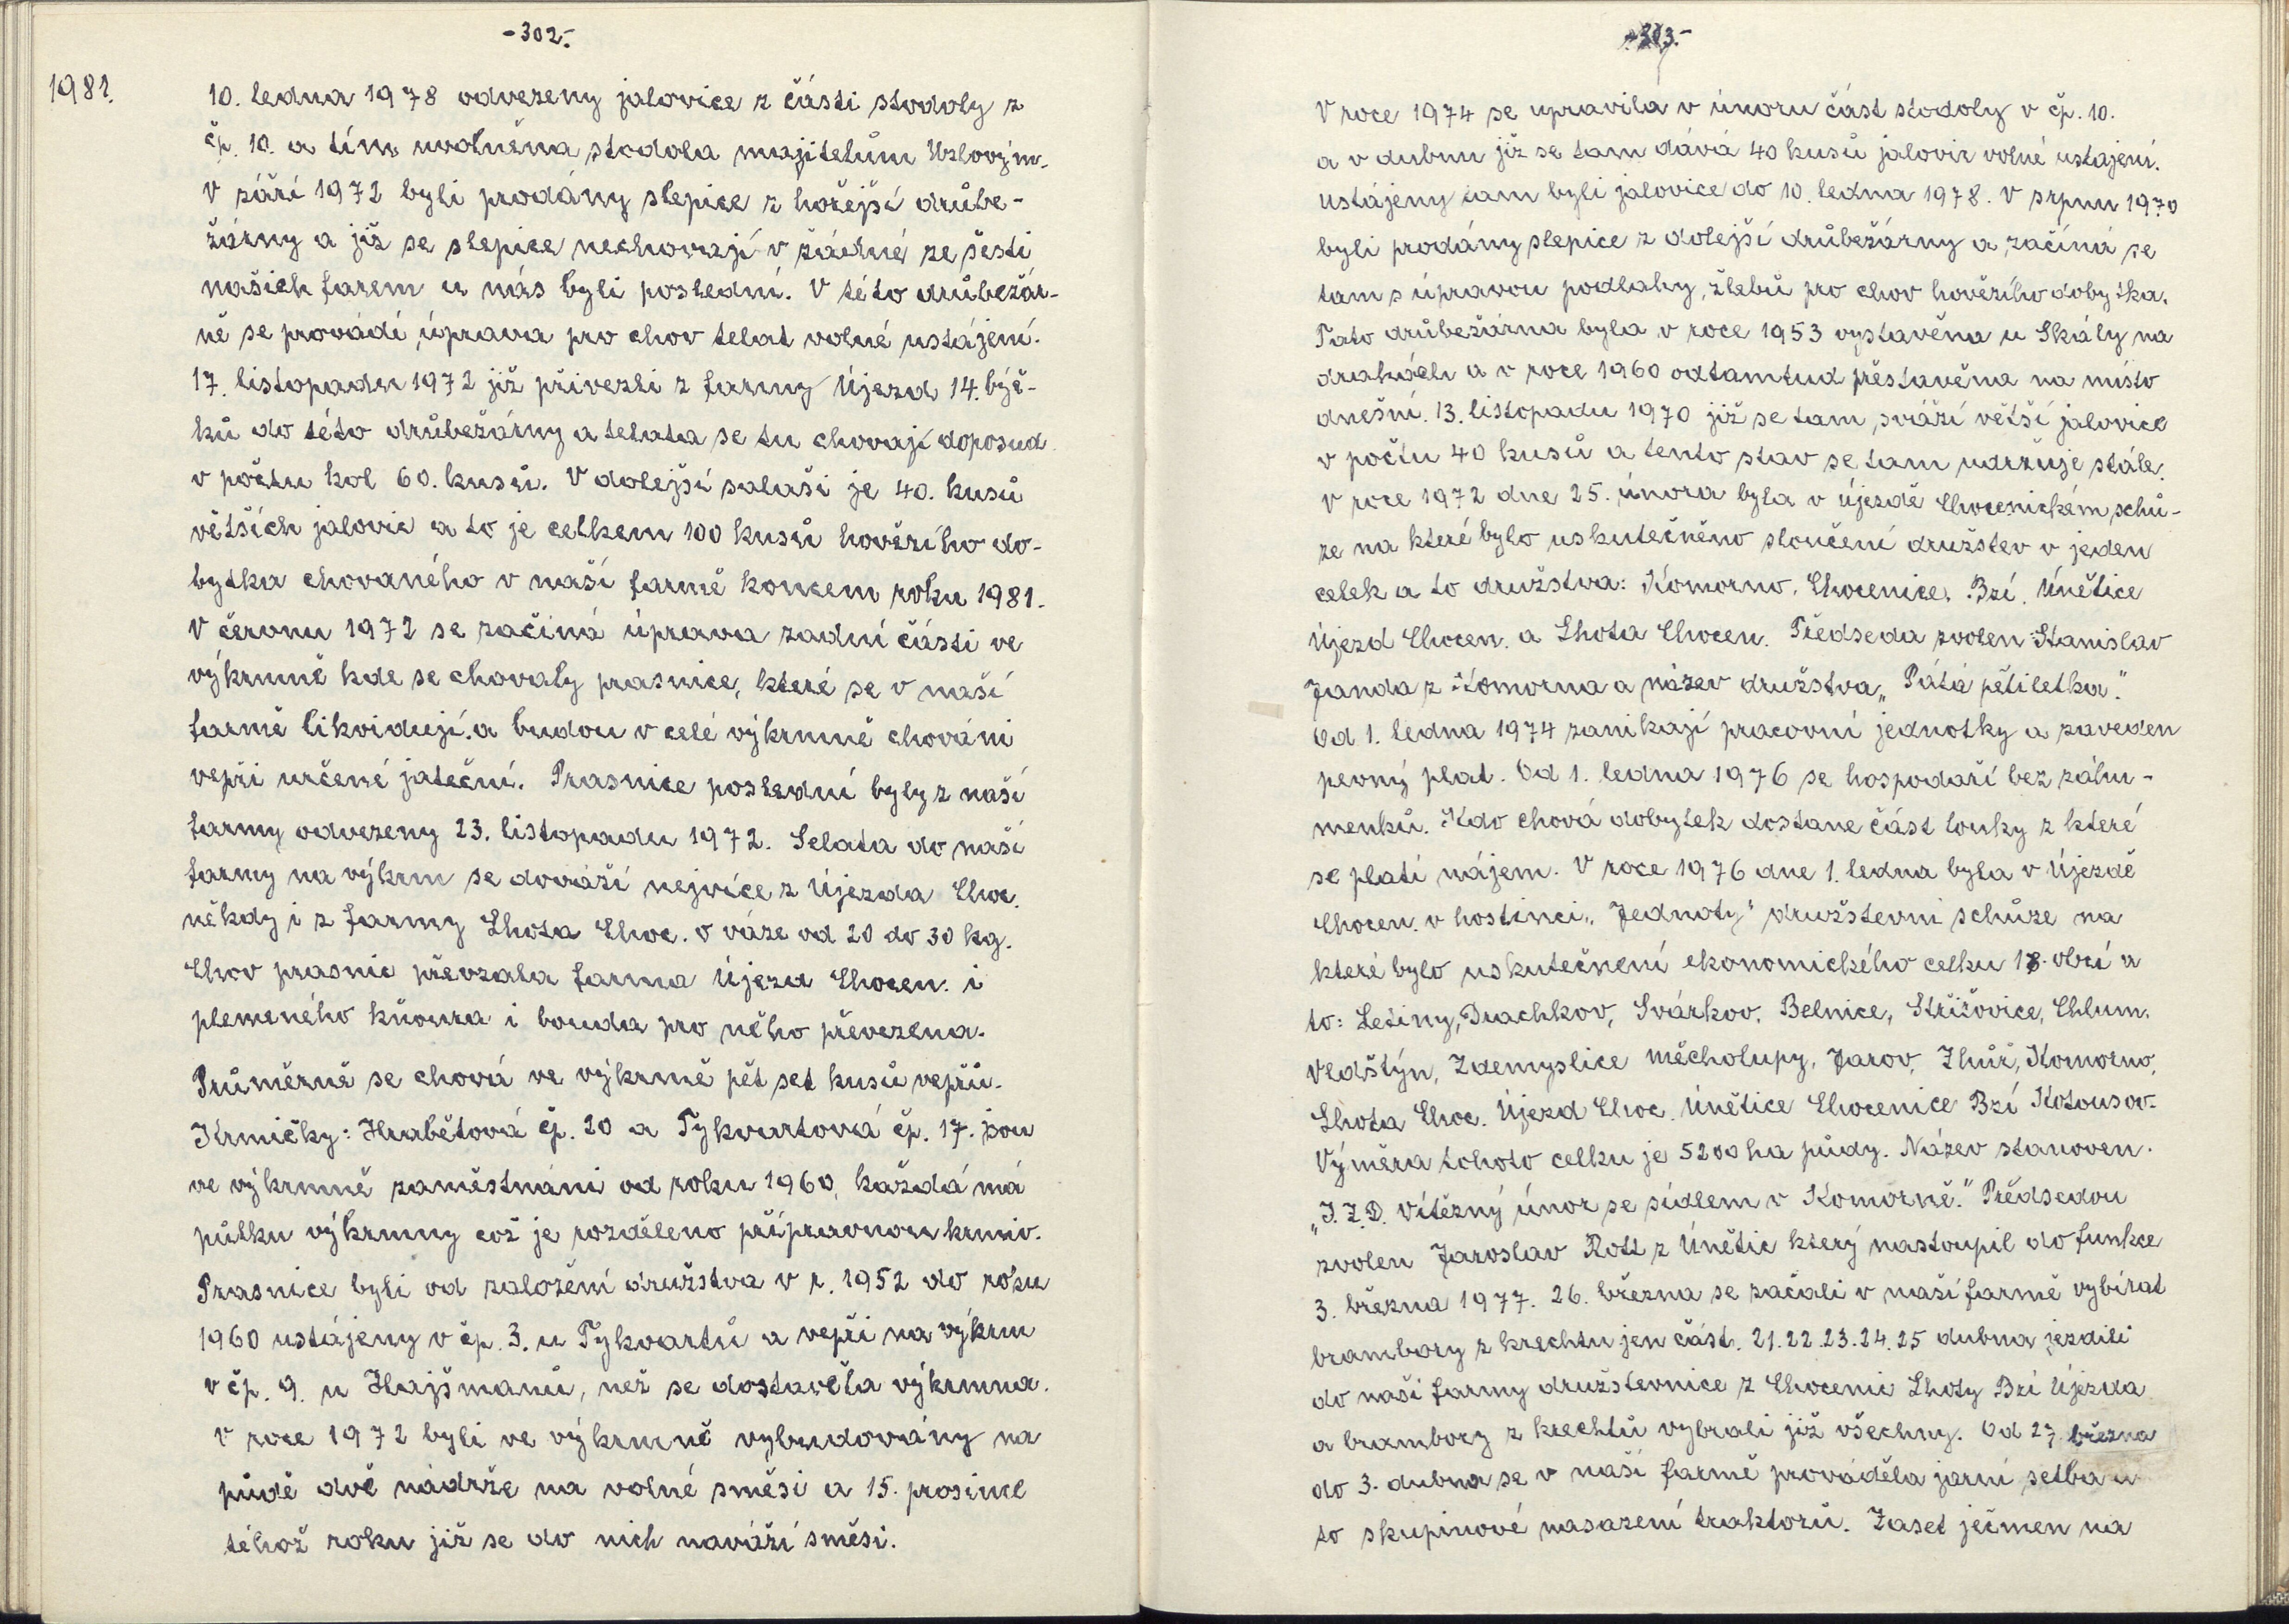 -302.-
1981.
10. ledna 1978 odvezeny jalovice z části stodoly z
čp. 10. a tím uvolněna stodola majitelům Uzlovým.
V září 1972 byli prodány slepice z hořejší drůbe-
žárny a již se slepice nechovají v žádné ze šesti
našich farem u nás byli poslední. V této drůbežár-
ně se provádí úprava pro chov telat volné ustájení.
17. listopadu 1972 již přivezli z farmy Újezd 14. býč-
ků do této drůbežárny a telata se tu chovají doposud
v počtu kol 60. kusů. V dolejší salaši je 40. kusů
větších jalovic a to je celkem 100 kusů hovězího do-
bytka chovaného v naší farmě koncem roku 1981.
V červnu 1972 se začíná úprava zadní části ve
výkrmně kde se chovaly prasnice, které se v naší
farmě likvidují a budou v celé výkrmně chováni
vepři určené jateční. Prasnice poslední byly z naší
farmy odvezeny 23. listopadu 1972. Selata do naší
farmy na výkrm se dováží nejvíce z Újezda Choc.
někdy i z farmy Lhota Choc. o váze od 20 do 30 kg.
Chov prasnic převzala farma Újezd Chocen. i
plemeného kňoura i bouda pro něho převezena.
Průměrně se chová ve výkrmě pět set kusů vepřů.
Krmičky: Hrabětová čp. 20 a Tykvartová čp. 17. jsou
ve výkrmně zaměstnáni od roku 1960, každá má
půlku výkrmny což je rozděleno přípravnou krmiv.
Prasnice byli od založení družstva v r. 1952 do roku
1960 ustájeny v čp. 3. u Tykvartů a vepři na výkrm
v čp. 9. u Hajšmanů, než se dostavěla výkrmna.
v roce 1972 byli ve výkrmně vybudovány na
půdě dvě nádrže na volné směsi a 15. prosince
téhož roku již se do nich naváží směsi.
-303.-
V roce 1974 se upravila v únoru část stodoly v čp. 10.
a v dubnu již se tam dává 40 kusů jalovic volné ustájení.
ustájeny tam byli jalovice do 10. ledna 1978. V srpnu 1970
byli prodány slepice z dolejší drůbežárny a začíná se
tam s úpravou podlahy, žlebů pro chov hovězího dobytka.
Tato drůbežárna byla v roce 1953 vystavěna u Skály na
drahách a v roce 1960 odtamtud přestavěna na místo
dnešní. 13. listopadu 1970 již se tam sváží větší jalovice
v počtu 40 kusů a tento stav se tam udržuje stále.
V roce 1972 dne 25. února byla v Újezdě Chocenickém schů-
ze na které bylo uskutečněno sloučení družstev v jeden
celek a to družstva: Komorno, Chocenice, Bzí. Únětice
Újezd Chocen. a Lhota Chocen. Předseda zvolen Stanislav
Janda z Komorna a název družstva „Pátá pětiletka."
Od 1. ledna 1974 zanikají pracovní jednotky a zaveden
pevný plat. Od 1. ledna 1976 se hospodaří bez záhu-
menků. Kdo chová dobytek dostane část louky z které
se platí nájem. V roce 1976 dne 1. ledna byla v Újezdě
Chocen. v hostinci „Jednoty" družstevní schůze na
které bylo uskutečnení ekonomického celku 18. obcí a
to: Letiny, Drachkov, Svárkov, Belnice, Střižovice, Chlum.
Vedštýn, Zdemyslice Měcholupy, Jarov, Zhůř, Komorno,
Lhota Choc. Újezd Choc. Únětice Chocenice Bzí Kotousov.
Výměra tohoto celku je 5200 ha půdy. Název stanoven.
„J.Z.D. Vítězný únor se sídlem v Komorně." Předsedou
zvolen Jaroslav Rott z Únětic který nastoupil do funkce
3. března 1977. 26. března se začali v naší farmě vybírat
brambory z krechtu jen část. 21. 22. 23. 24. 25 dubna jezdili
do naší farmy družstevnice z Chocenic Lhoty Bzí Újezda
a brambory z krechtů vybrali již všechny. Od 27. března
do 3. dubna se v naší farmě prováděla jarní setba a
to skupinové nasazení traktorů. Zaset ječmen na